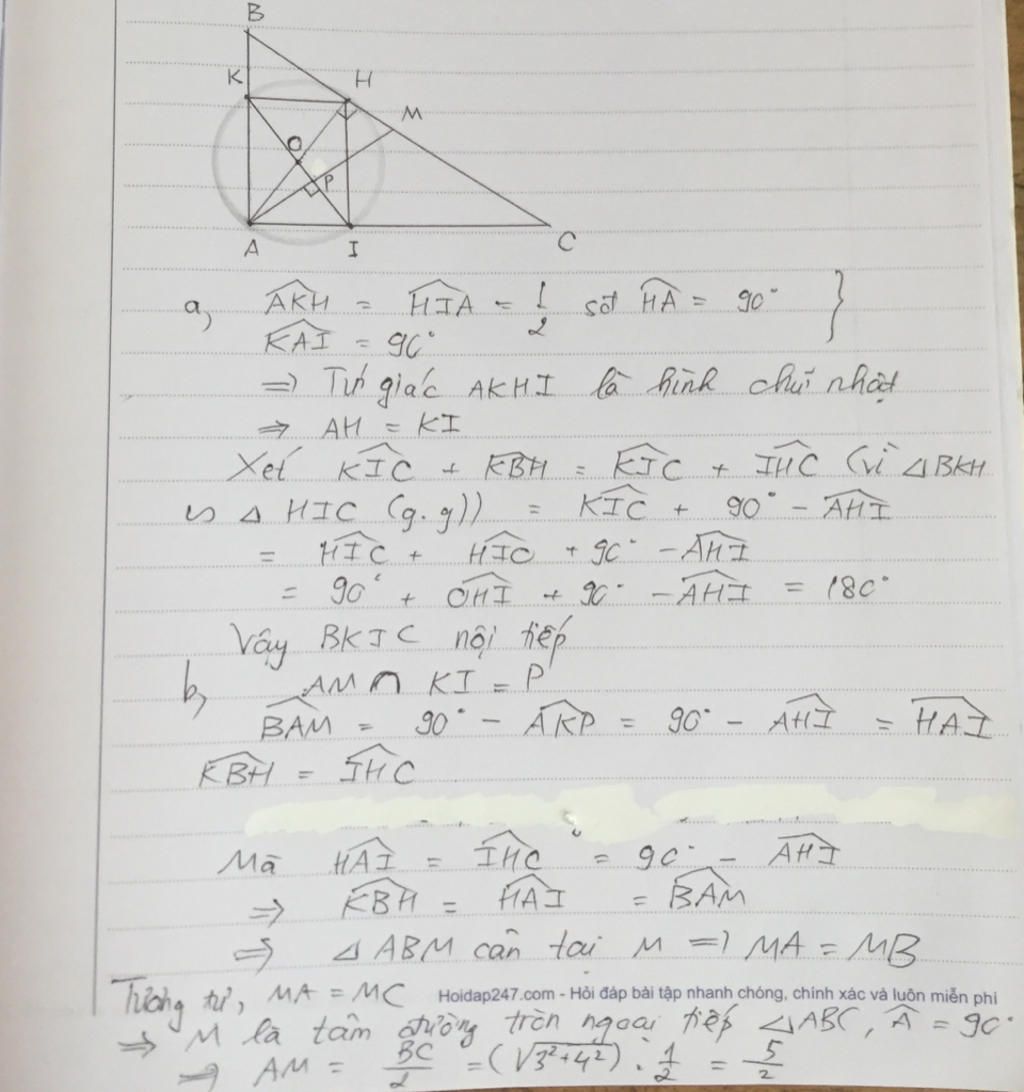 B
K H
M
O
P
A I C
a, AKH = HIA = 1/2 sđ HA = 90° }
KAI = 90°
=> Tứ giác AKHI là hình chữ nhật
=> AH = KI
Xét KIC + KBH = KIC + IHC (vì △BKH
∽ △ HIC (g.g)) = KIC + 90° - AHI
= HIC + HIO + 90° - AHI
= 90° + OHI + 90° - AHI = 180°
Vậy BKIC nội tiếp
b, AM ∩ KI = P
BAM = 90° - AKP = 90° - AHI = HAI
KBH = IHC
Mà HAI = IHC = 90° - AHI
=> KBH = HAI = BAM
=> △ABM cân tại M => MA = MB
Tương tự, MA = MC Hoidap247.com - Hỏi đáp bài tập nhanh chóng, chính xác và luôn miễn phí
=> M là tâm đường tròn ngoại tiếp △ABC, A = 90°
=> AM = BC/2 = (√3²+4²) . 1/2 = 5/2